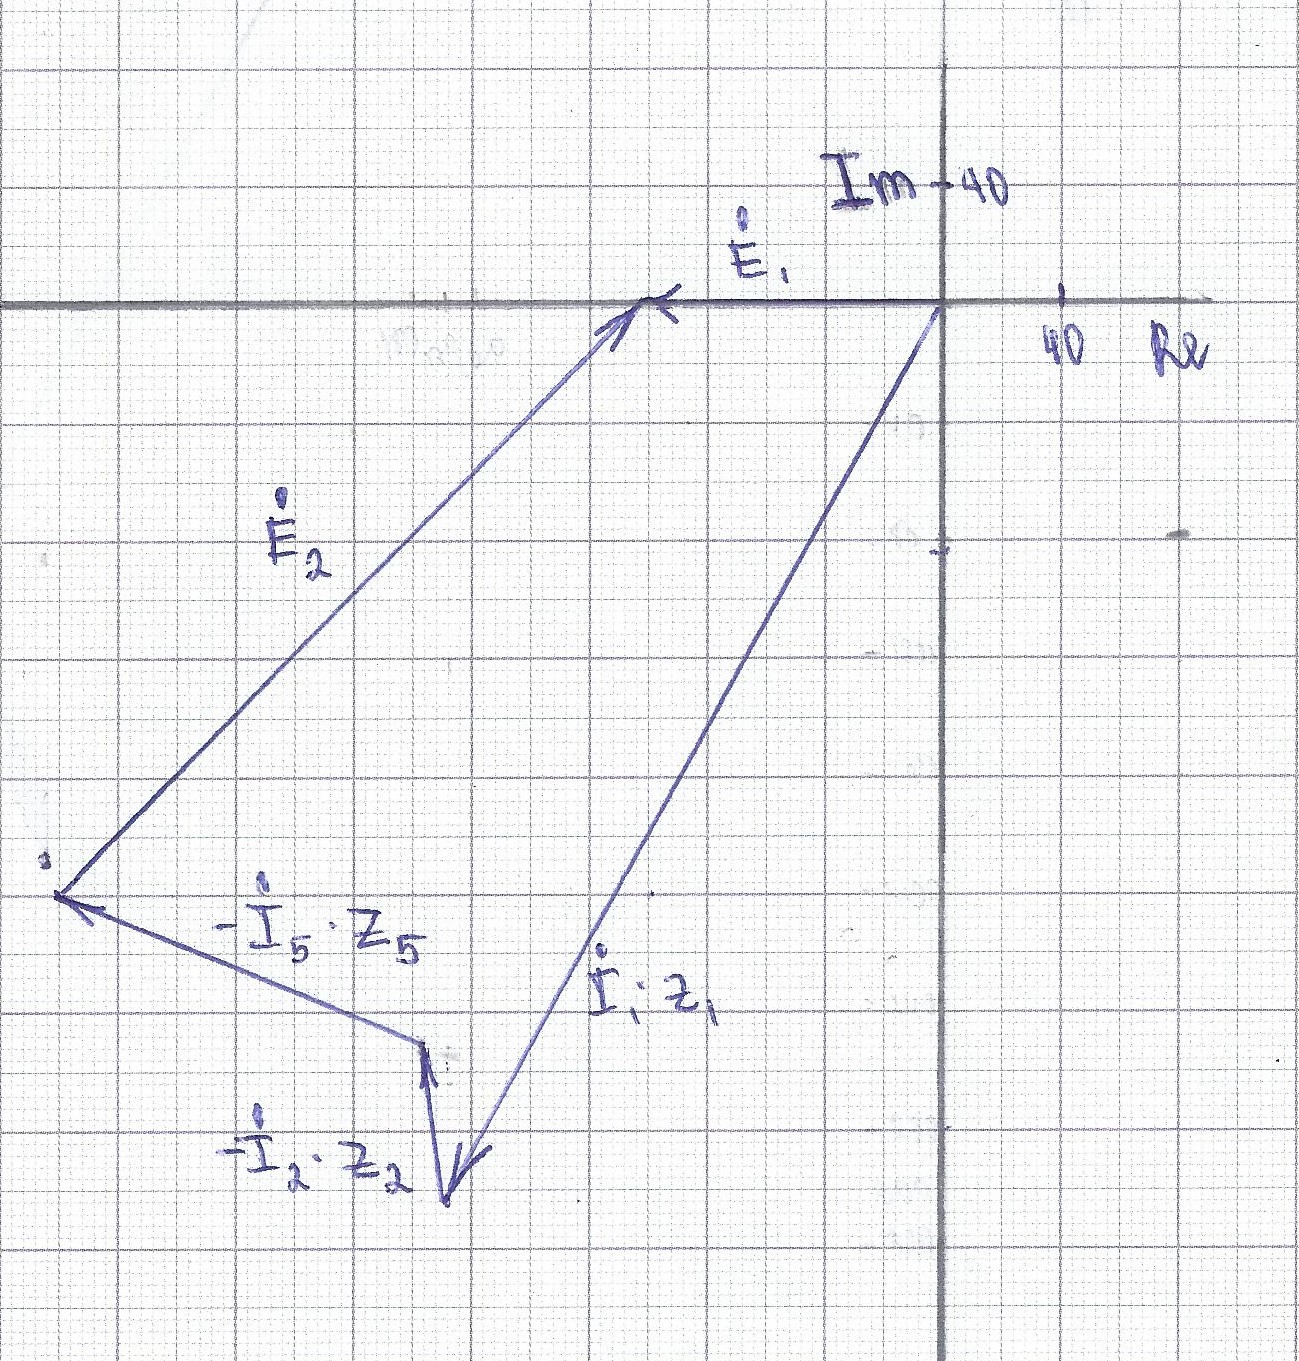 Im 40
Ė₁
40 Re
Ė₂
-İ₅·Z₅
İ₁·Z₁
-İ₂·Z₂